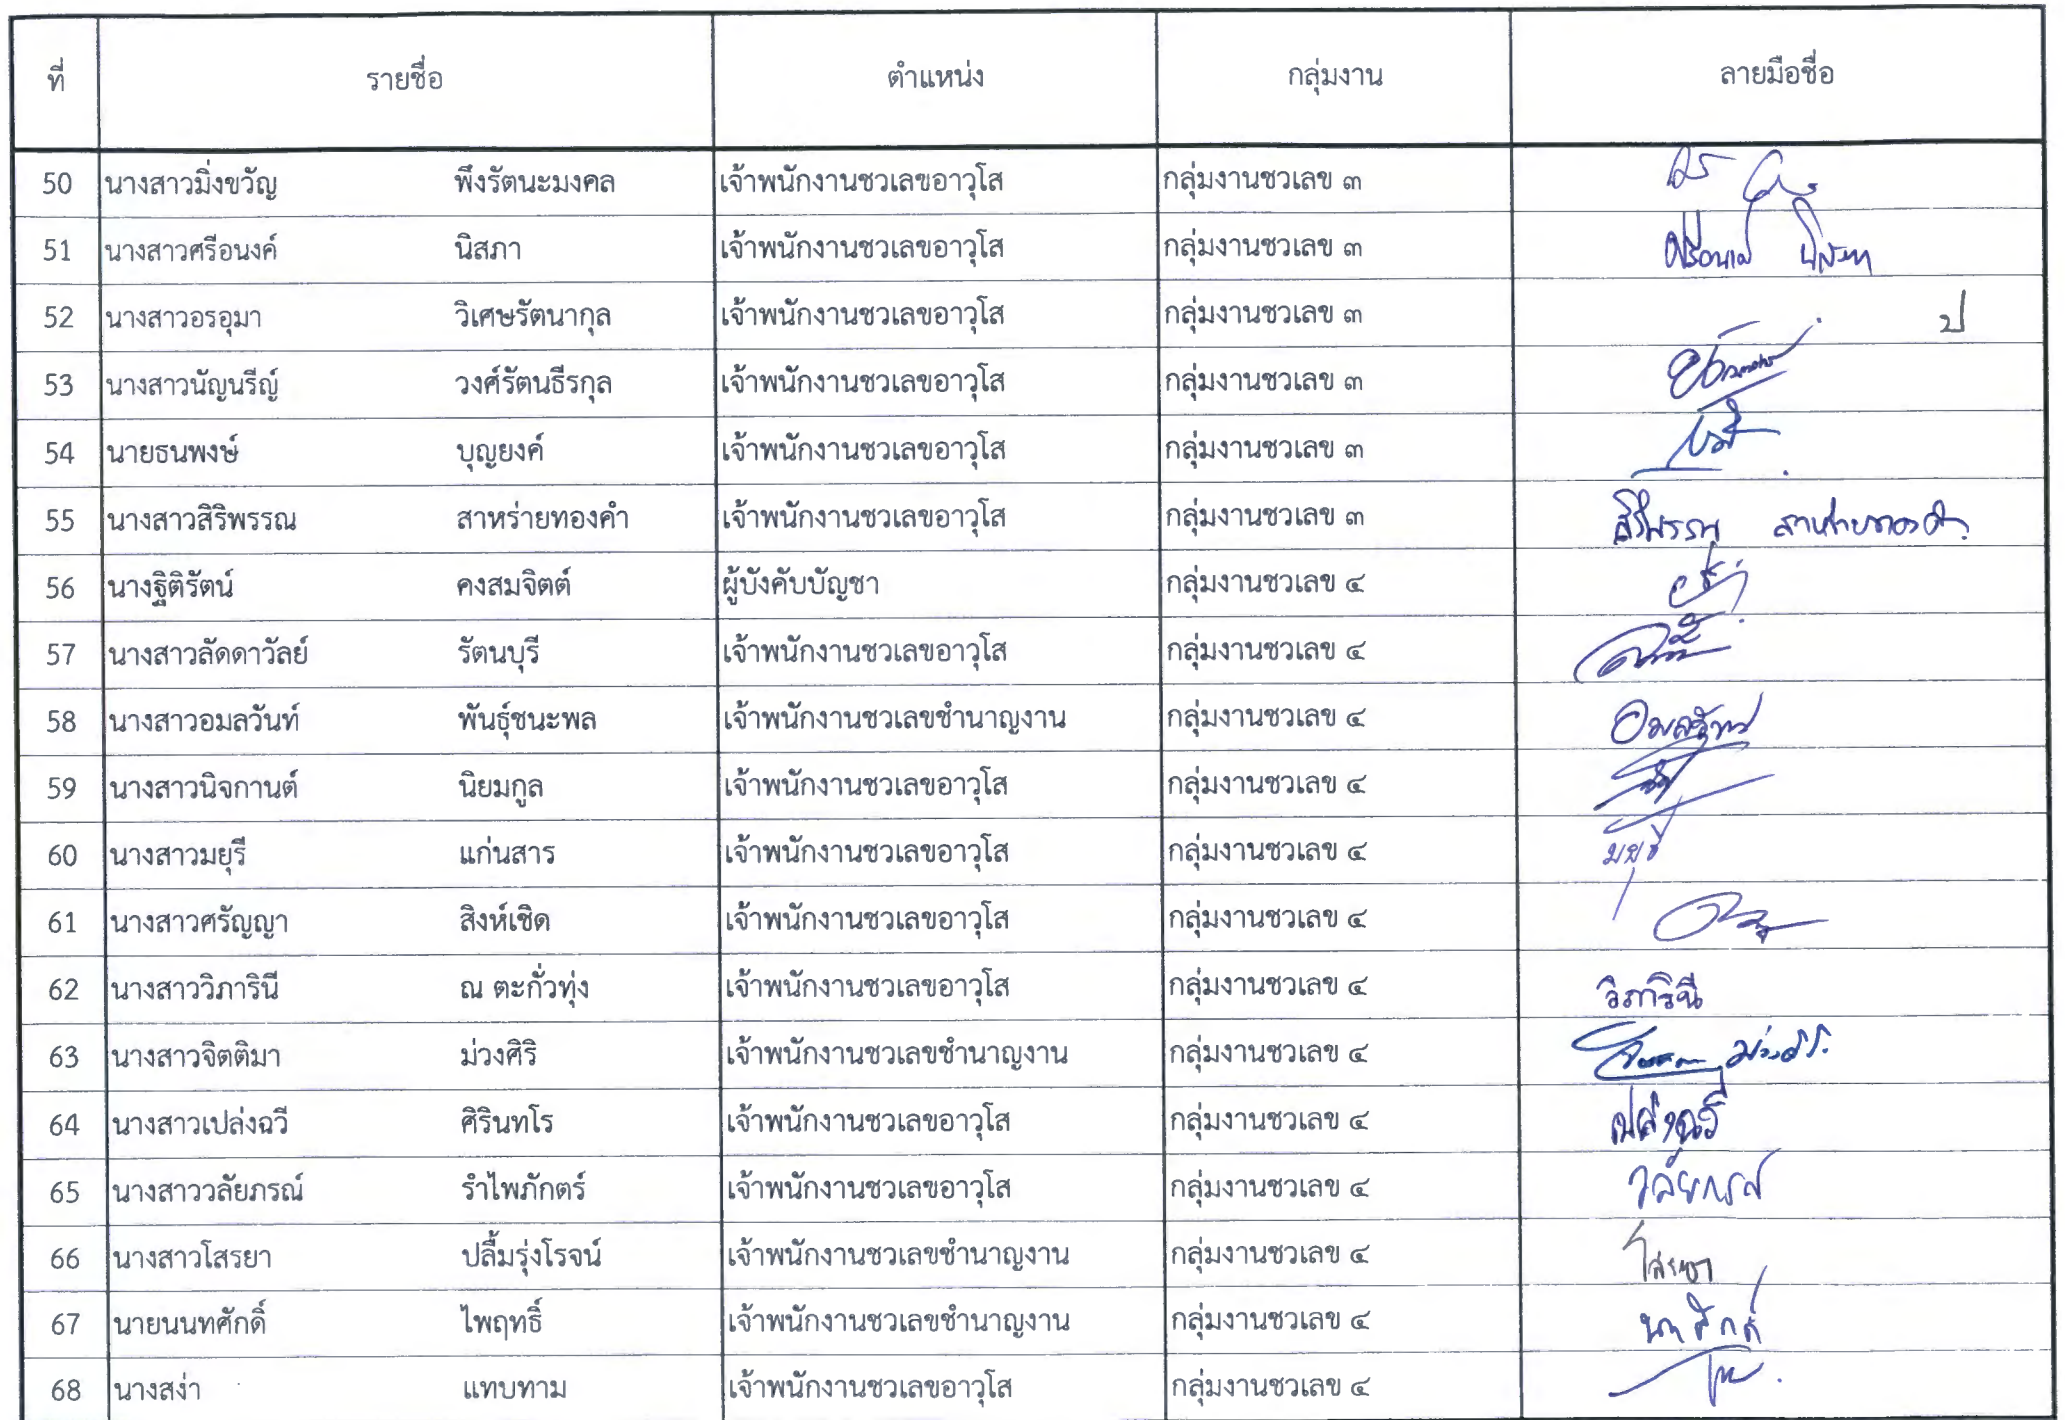 ที่ รายชื่อ ตำแหน่ง กลุ่มงาน ลายมือชื่อ
50 นางสาวมิ่งขวัญ พึงรัตนะมงคล เจ้าพนักงานชวเลขอาวุโส กลุ่มงานชวเลข ๓
51 นางสาวศรีอนงค์ นิสภา เจ้าพนักงานชวเลขอาวุโส กลุ่มงานชวเลข ๓ ศรีอนงค์ นิสภา
52 นางสาวอรอุมา วิเศษรัตนากุล เจ้าพนักงานชวเลขอาวุโส กลุ่มงานชวเลข ๓ ป
53 นางสาวนัญนรีญ์ วงศ์รัตนธีรกุล เจ้าพนักงานชวเลขอาวุโส กลุ่มงานชวเลข ๓
54 นายธนพงษ์ บุญยงค์ เจ้าพนักงานชวเลขอาวุโส กลุ่มงานชวเลข ๓
55 นางสาวสิริพรรณ สาหร่ายทองคำ เจ้าพนักงานชวเลขอาวุโส กลุ่มงานชวเลข ๓ สิริพรรณ สาหร่ายทองคำ
56 นางฐิติรัตน์ คงสมจิตต์ ผู้บังคับบัญชา กลุ่มงานชวเลข ๔
57 นางสาวลัดดาวัลย์ รัตนบุรี เจ้าพนักงานชวเลขอาวุโส กลุ่มงานชวเลข ๔
58 นางสาวอมลวันท์ พันธุ์ชนะพล เจ้าพนักงานชวเลขชำนาญงาน กลุ่มงานชวเลข ๔ อมลวันท์
59 นางสาวนิจกานต์ นิยมกูล เจ้าพนักงานชวเลขอาวุโส กลุ่มงานชวเลข ๔
60 นางสาวมยุรี แก่นสาร เจ้าพนักงานชวเลขอาวุโส กลุ่มงานชวเลข ๔ มยุรี
61 นางสาวศรัญญา สิงห์เชิด เจ้าพนักงานชวเลขอาวุโส กลุ่มงานชวเลข ๔
62 นางสาววิภารินี ณ ตะกั่วทุ่ง เจ้าพนักงานชวเลขอาวุโส กลุ่มงานชวเลข ๔ วิภารินี
63 นางสาวจิตติมา ม่วงศิริ เจ้าพนักงานชวเลขชำนาญงาน กลุ่มงานชวเลข ๔ ม่วงศิริ
64 นางสาวเปล่งฉวี ศิรินทโร เจ้าพนักงานชวเลขอาวุโส กลุ่มงานชวเลข ๔ เปล่งฉวี
65 นางสาววลัยภรณ์ รำไพภักตร์ เจ้าพนักงานชวเลขอาวุโส กลุ่มงานชวเลข ๔ วลัยภรณ์
66 นางสาวโสรยา ปลื้มรุ่งโรจน์ เจ้าพนักงานชวเลขชำนาญงาน กลุ่มงานชวเลข ๔ โสรยา
67 นายนนทศักดิ์ ไพฤทธิ์ เจ้าพนักงานชวเลขชำนาญงาน กลุ่มงานชวเลข ๔
68 นางสง่า แทบทาม เจ้าพนักงานชวเลขอาวุโส กลุ่มงานชวเลข ๔